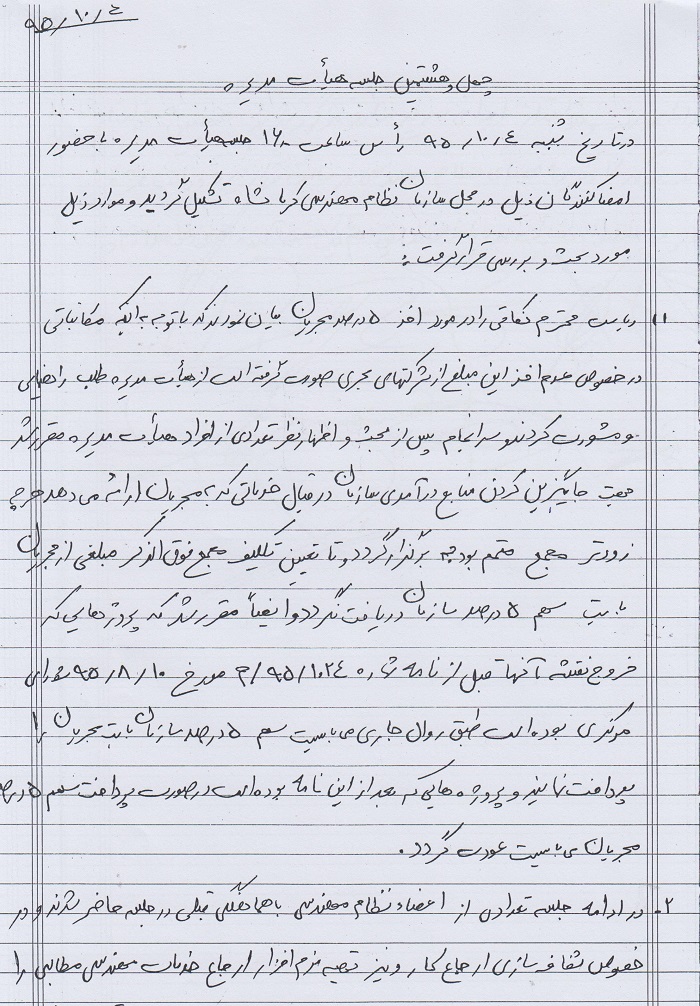 ۹۵/۱۰/۴
چهل و هشتمین جلسه هیأت مدیره
در تاریخ شنبه ۹۵/۱۰/۴ رأس ساعت ۱۶ جلسه هیأت مدیره با حضور
امضاکنندگان ذیل در محل سازمان نظام مهندسی کرمانشاه تشکیل گردید و موارد ذیل
مورد بحث و بررسی قرار گرفت:
۱) ریاست محترم نکاتی را در مورد اخذ ۵ درصد مجریان بیان نمودند که با توجه به اینکه مکاتباتی
در خصوص عدم اخذ این مبلغ از شرکتهای مجری صورت گرفته است از هیأت مدیره طلب راهنمایی
و مشورت کردند و سرانجام پس از بحث و اظهار نظر تعدادی از افراد هیأت مدیره مقرر شد
جهت جایگزین کردن منابع درآمدی سازمان در قبال خدماتی که به مجریان ارائه می دهد هر چه
زودتر مجمع متمم بودجه برگزار گردد و تا تعیین تکلیف مجمع فوق الذکر مبلغی از مجریان
بابت سهم ۵ درصد سازمان دریافت نگردد و ایضاً مقرر شد که پروژه هایی که
خروج نقشه آنها قبل از نامه شماره ۹۵/۱۰۲۴/م مورخ ۹۵/۸/۱۰ شورای
مرکزی بوده است طبق روال جاری می بایست سهم ۵ درصد سازمان بابت مجریان را
پرداخت نمایند و پروژه هایی که بعد از این نامه بوده است در صورت پرداخت سهم ۵ درصد
مجریان می بایست عودت گردد.
۲- در ادامه جلسه تعدادی از اعضاء نظام مهندسی با هماهنگی قبلی در جلسه حاضر شدند و در
خصوص شفاف سازی ارجاع کار و نیز تهیه نرم افزار ارجاع خدمات مهندسی مطالبی را